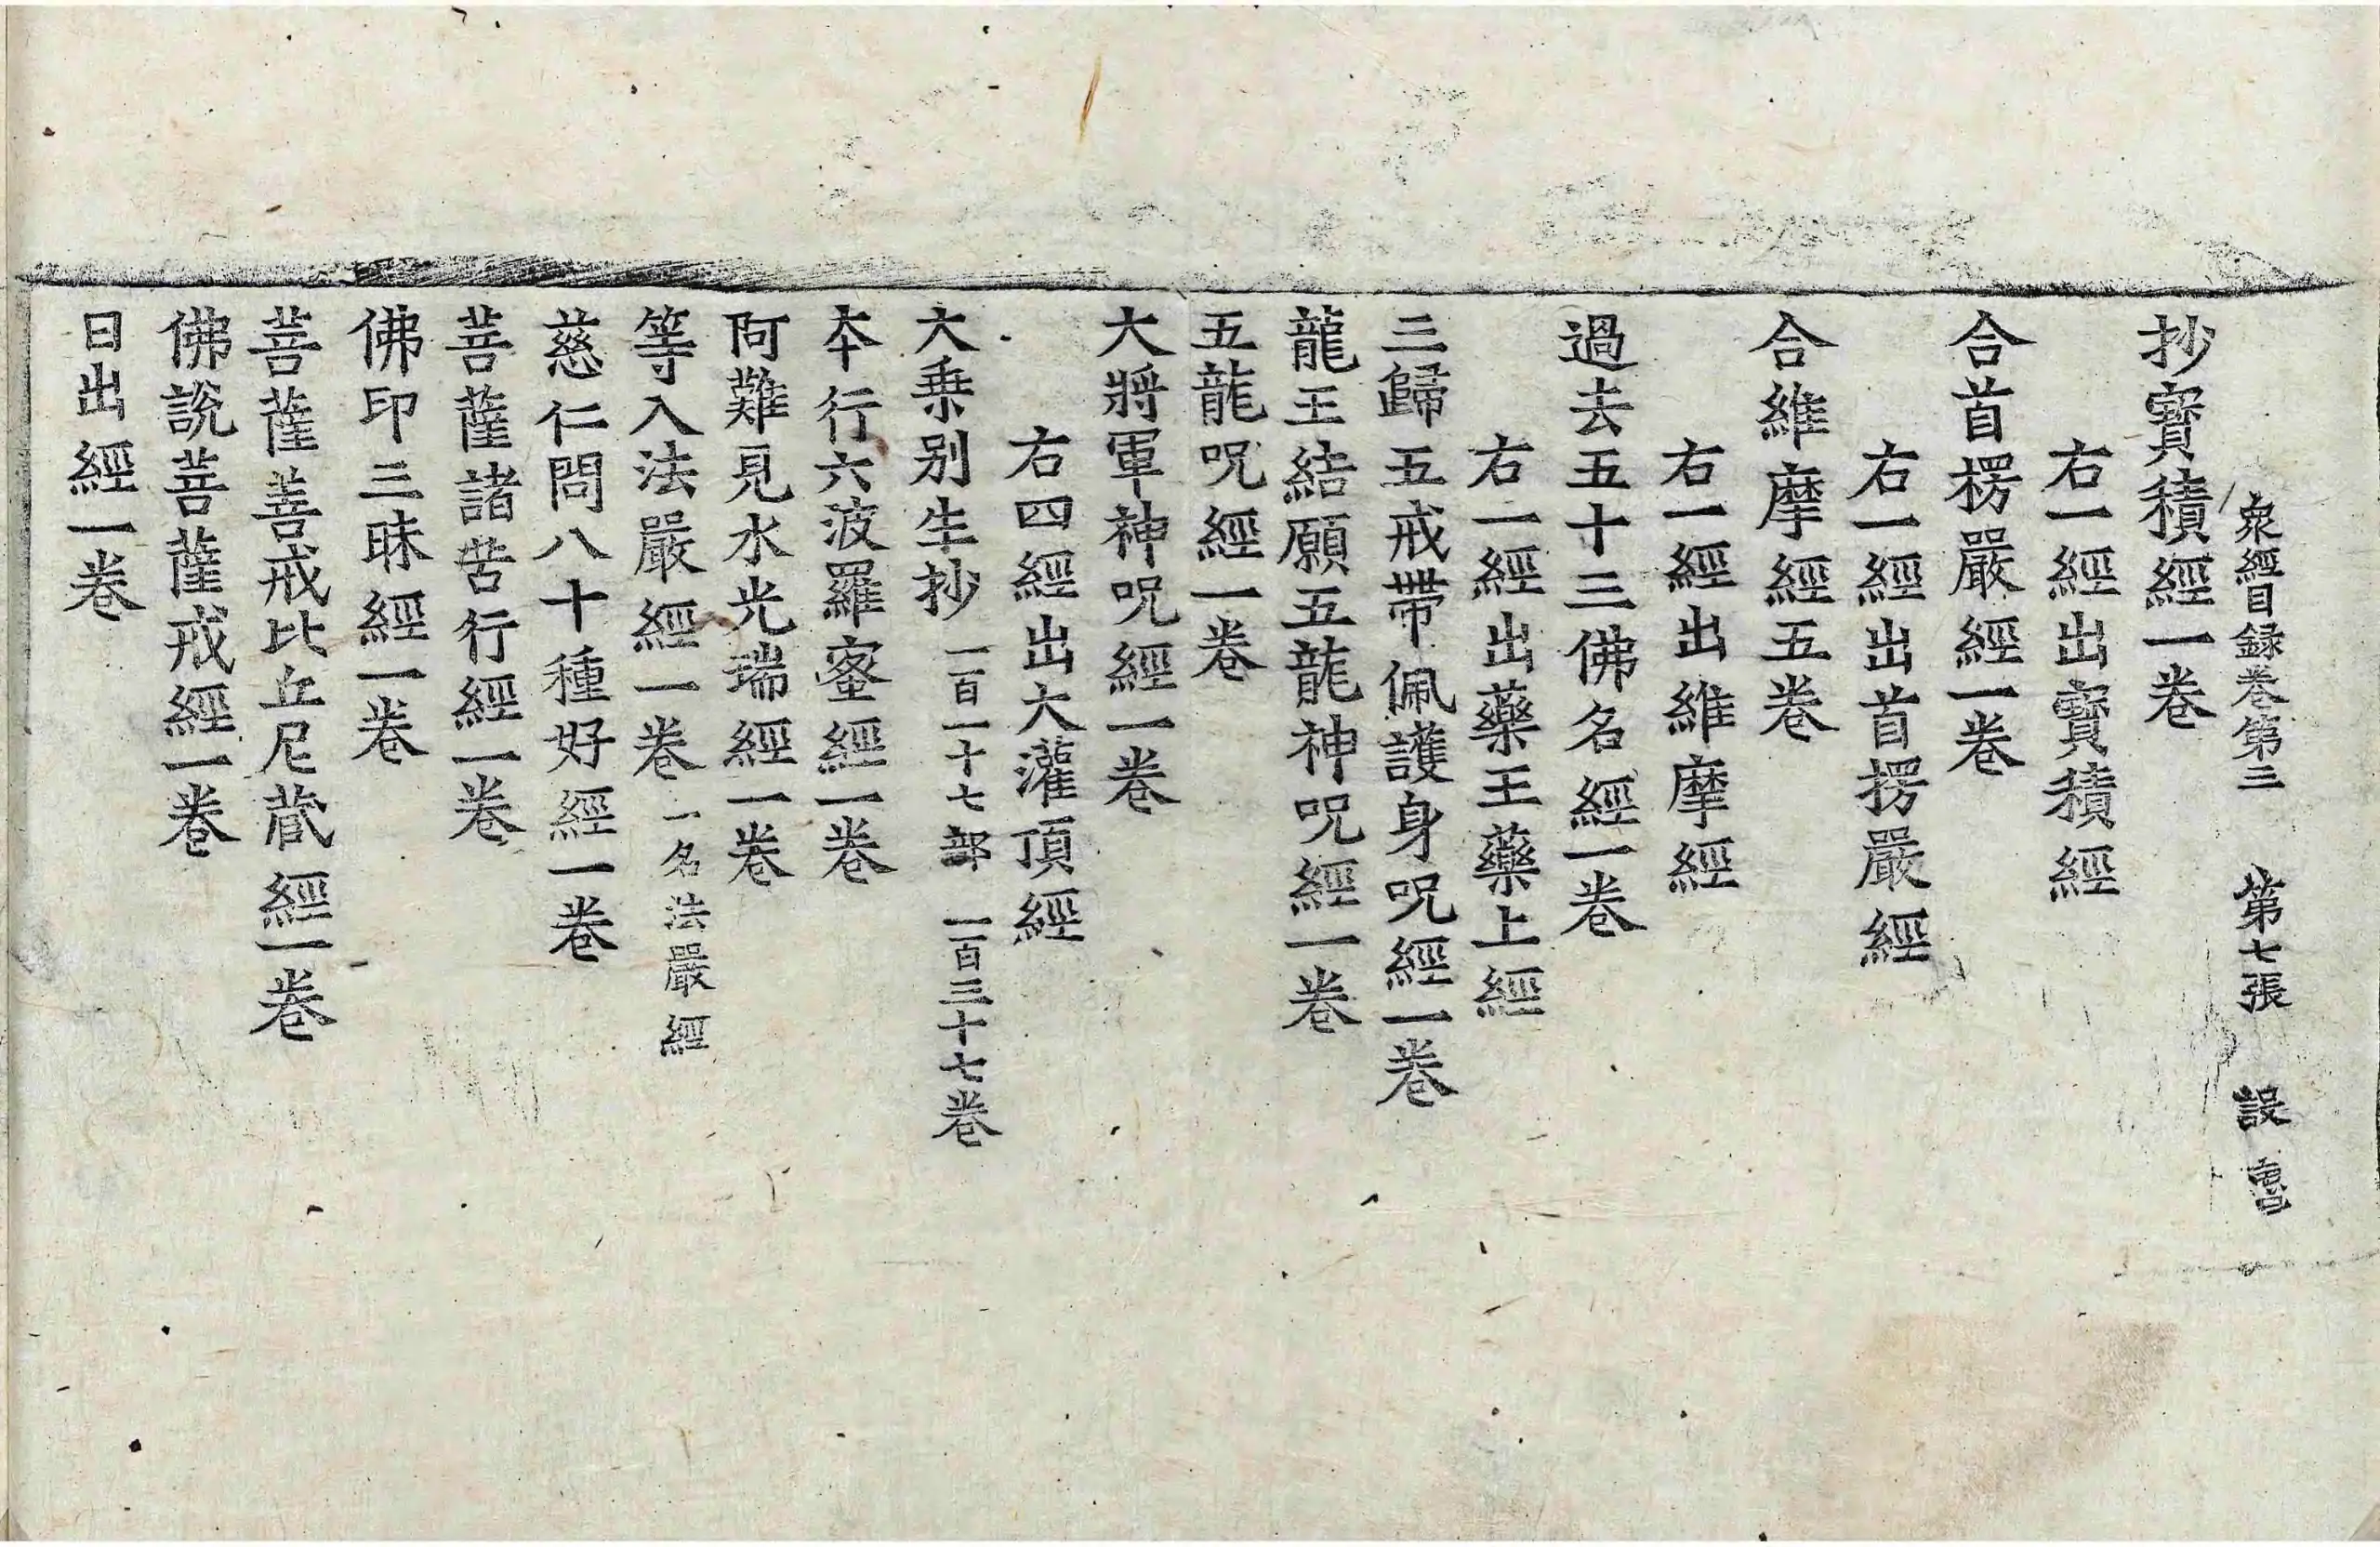 衆經目録卷第三　第七張　設
抄寳積經一卷
右一經出寳積經
合首楞嚴經一卷
右一經出首楞嚴經
合維摩經五卷
右一經出維摩經
過去五十三佛名經一卷
右一經出藥王藥上經
三歸五戒帶佩護身呪經一卷
龍王結願五龍神呪經一卷
五龍呪經一卷
大將軍神呪經一卷
右四經出大灌頂經
大乗别生抄　一百一十七部　一百三十七卷
夲行六波羅蜜經一卷
阿難見水光瑞經一卷
等入法嚴經一卷　一名法嚴經
慈仁問八十種好經一卷
菩薩諸苦行經一卷
佛印三昧經一卷
菩薩善戒比丘尼蔵經一卷
佛說菩薩戒經一卷
日出經一卷